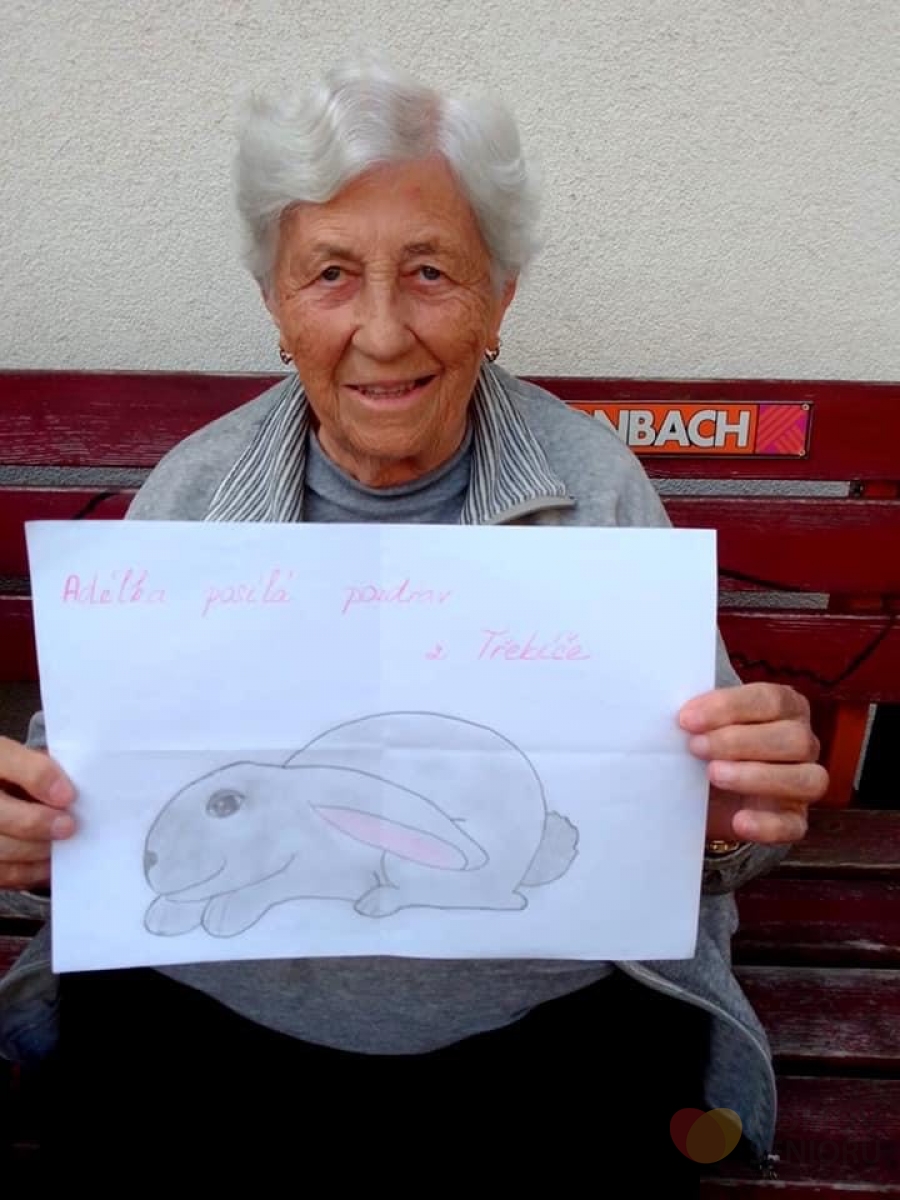 NBACH
Adélka posílá pozdrav
z Třebíče